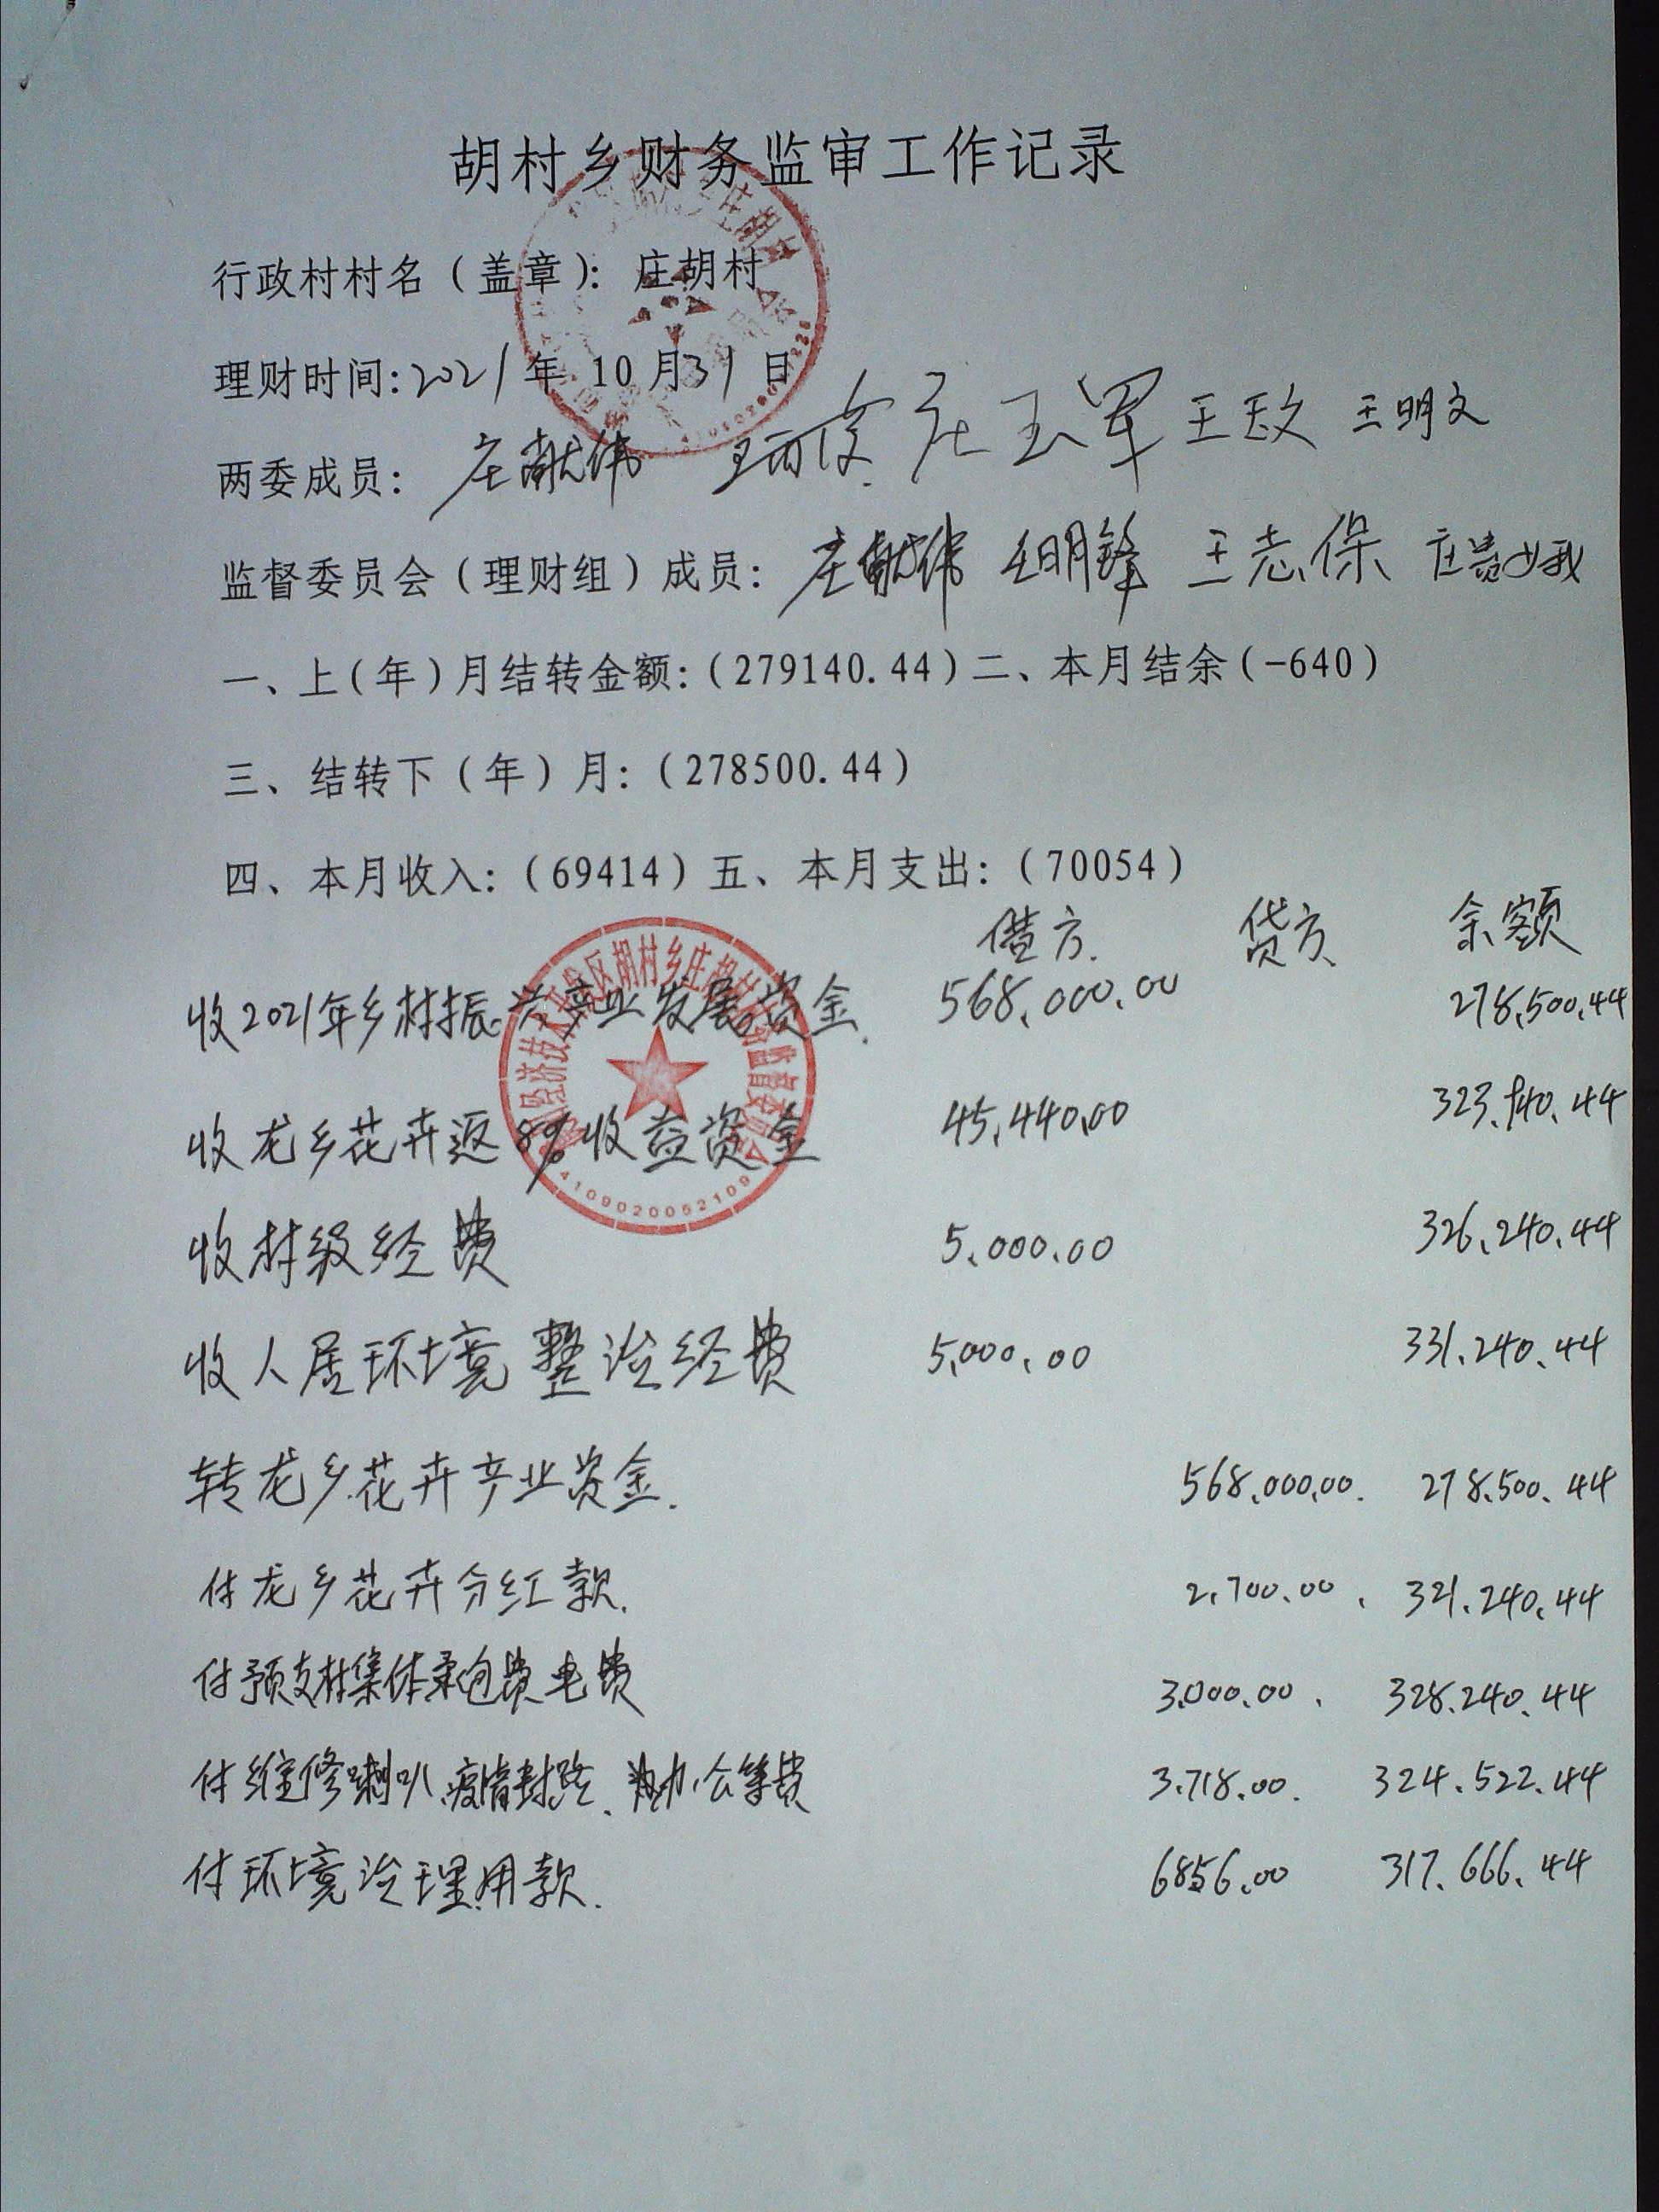 胡村乡财务监审工作记录
行政村村名（盖章）：庄胡村
理财时间：2021年 10月31日
两委成员：庄献伟 庄玉军 王玫 王明文
监督委员会（理财组）成员：庄献伟 王明锋 王志保 庄贵娥
一、上（年）月结转金额：（279140.44）二、本月结余（-640）
三、结转下（年）月：（278500.44）
四、本月收入：（69414）五、本月支出：（70054）
借方 贷方 余额
收2021年乡村振兴产业发展资金 568,000.00 278,500.44
收龙乡花卉返8%收益资金 45,440.00 323,940.44
收村级经费 5,000.00 326,240.44
收人居环境整治经费 5,000.00 331,240.44
转龙乡花卉产业资金 568,000.00 278,500.44
付龙乡花卉分红款 2,700.00 321,240.44
付预支村集体承包费电费 3,000.00 328,240.44
付维修喇叭、疫情封路、办公等费 3,718.00 324,522.44
付环境治理用款 6856.00 317,666.44
胡村乡庄胡村
经济技术开发区胡村乡庄胡村村务监督委员会
4109020052109